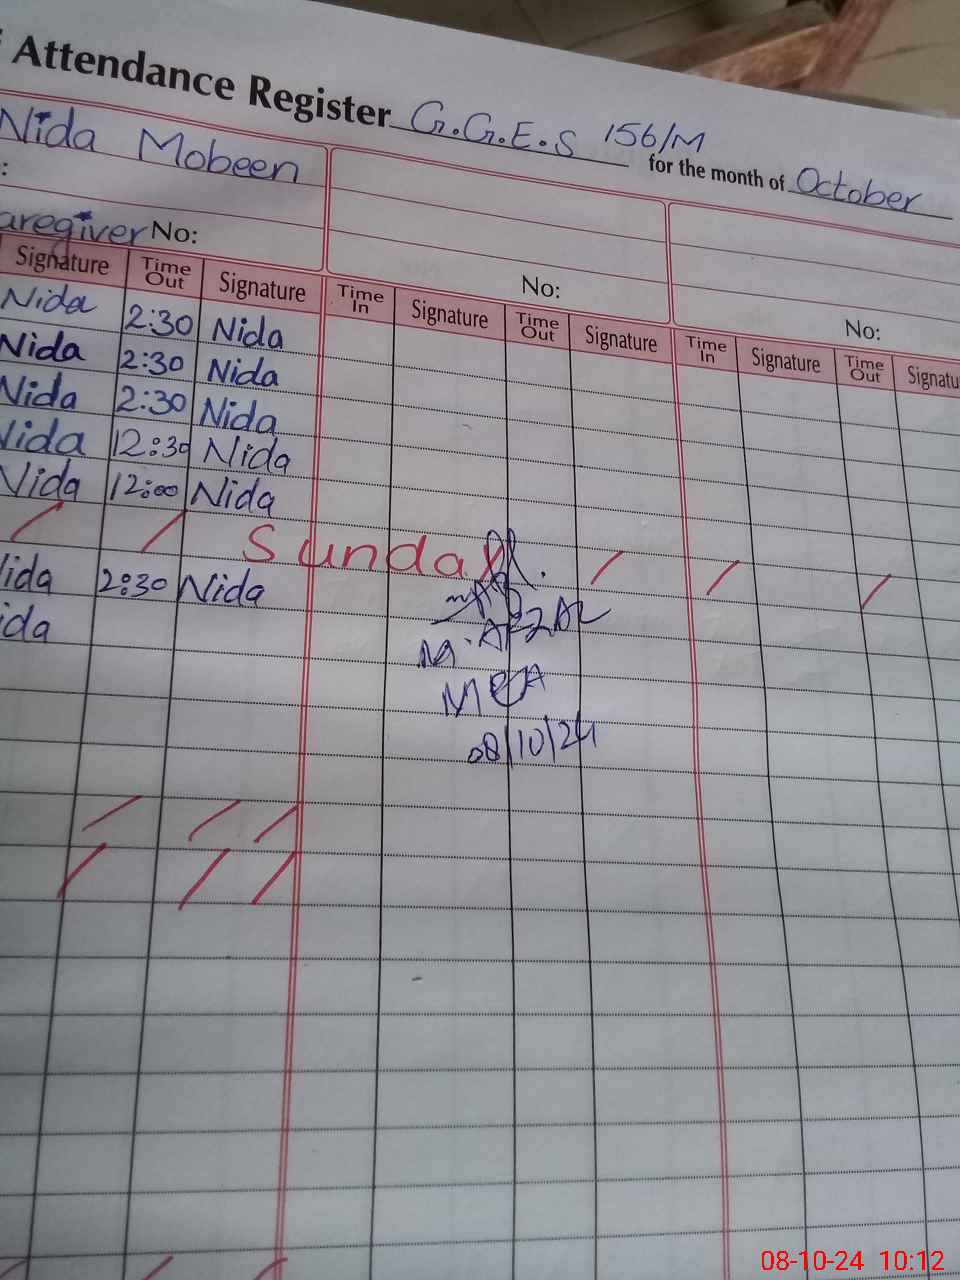 Attendance Register G.G.E.S 156/M for the month of October
Nida Mobeen
:
aregiver No: No: No:
Signature Time Out Signature Time In Signature Time Out Signature Time In Signature Time Out Signatu
Nida 2:30 Nida
Nida 2:30 Nida
Nida 2:30 Nida
Nida 12:30 Nida
Nida 12:00 Nida
Sunday
ida 2:30 Nida
ida
M.AFZAL
MEA
08/10/24
08-10-24 10:12